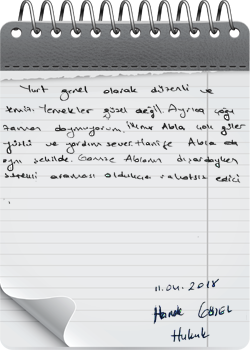 Yurt genel olarak düzenli ve
temiz. Yemekler güzel değil. Ayrıca çoğu
zaman doymuyorum. İlknur Abla çok güler
yüzlü ve yardım sever. Hanife Abla da
aynı şekilde. Gamze Ablanın dışardayken
sürekli araması oldukça rahatsız edici
11.04.2018
Hukuk